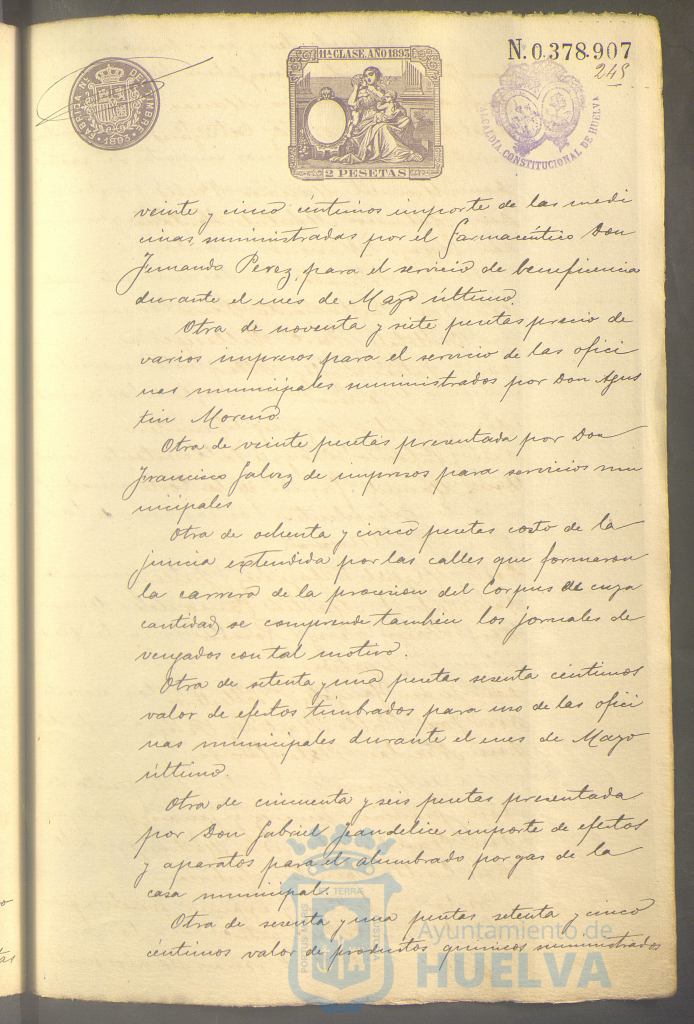 FABRICA Nal DEL TIMBRE
1893
11ª CLASE. AÑO 1893
2 PESETAS
N. 0.378.907
245
ALCALDÍA CONSTITUCIONAL DE HUELVA
veinte y cinco céntimos importe de las medi
cinas, suministradas por el farmacéutico Don
Fernando Perez, para el servicio de beneficencia
durante el mes de Mayo último.
Otra de noventa y siete pesetas precio de
varios impresos para el servicio de las ofici
nas municipales suministrados por Don Agus
tin Moreno.
Otra de veinte pesetas presentada por Don
Francisco Galvez de impresos para servicios mu
nicipales
Otra de ochenta y cinco pesetas costo de la
juncia extendida por las calles que formaron
la carrera de la procesion del Corpus de cuya
cantidad, se comprende tambien los jornales de
vengados con tal motivo.
Otra de setenta y una pesetas sesenta céntimos
valor de efectos timbrados para uso de las ofici
nas municipales durante el mes de Mayo
último.
Otra de cincuenta y seis pesetas presentada
por Don Gabriel Jeandelice importe de efectos
y aparatos para el alumbrado por gas de la
casa municipal.
Otra de sesenta y una pesetas setenta y cinco
céntimos valor de productos quimicos suministrados
Ayuntamiento de
HUELVA